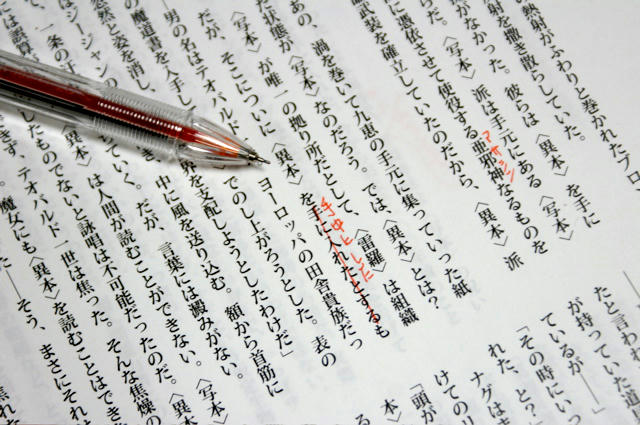 がふわりと巻かれたブロ
射を撒き散らしていた。
がなかった。彼らは〈異本〉を手に
らだ。〈写本〉派は手元にある〈写本〉
に憑依させて使役する亜邪神なるものを
アサシン
武装を確立していたのだから、〈異本〉派
あの、渦を巻いて九恵の手元に集っていった紙
だ状態が〈写本〉なのだろう。では、〈異本〉とは?
が唯一の拠り所だとして、は組織
だが、そこについに〈異本〉を手に入れたとするも
手中とした
―男の名はテオバルド
ヨーロッパの田舎貴族だっ
の魔道書を入手し
でのし上がろうとした。表の
忽然と姿を消し、
を支配しようとしたわけだ」
はジージャンの
中に風を送り込む。額から首筋に
一条の
ていく。だが、言葉には澱みがない。
〈異本〉は人間が読むことができない。〈写本〉
したものでないと詠唱は不可能だったのだ。〈異本
きず、テオバルド一世は焦った。そんな焦燥の
魔女にも〈異本〉を読むことはでき
――そう、まさにそれ
たと言わ
が持っていた道
ているが――
「その時にいっ
れた、と?」
ナグはま
けてのリ
「頭が
本〉